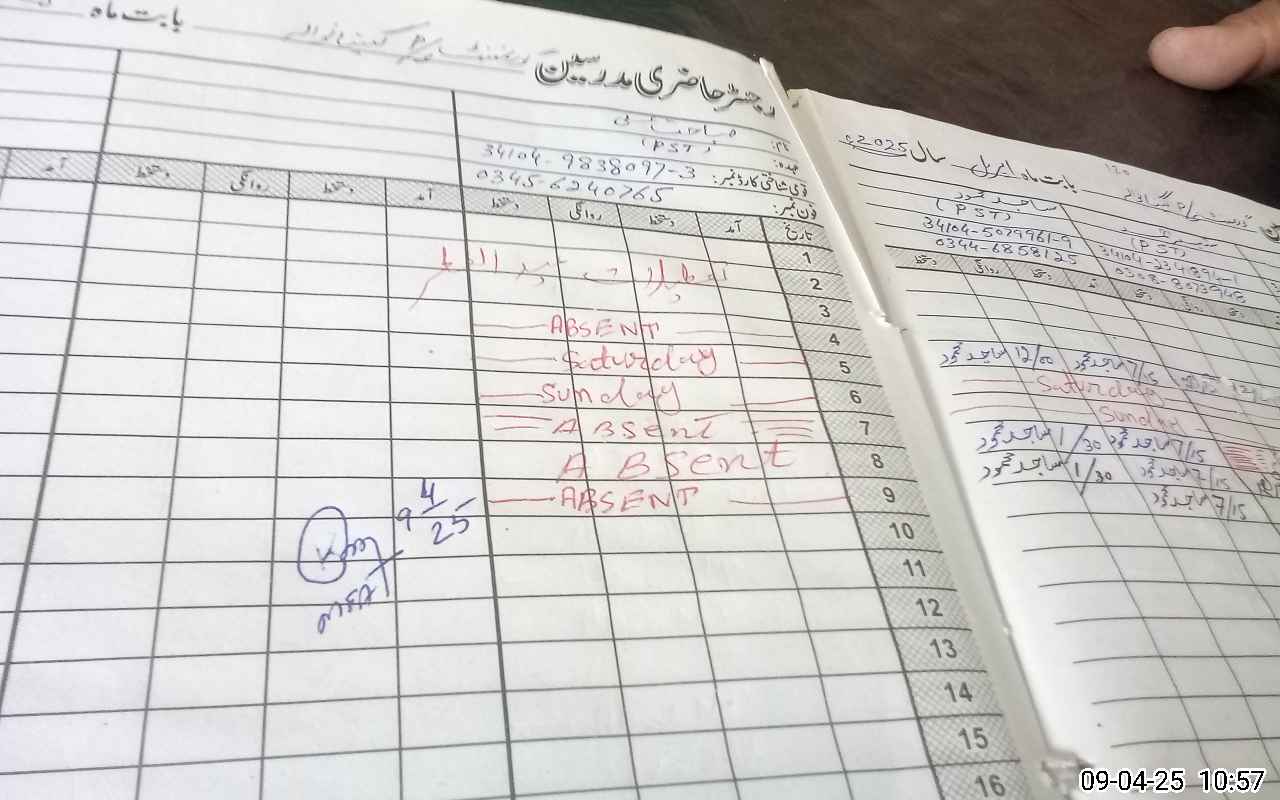 رجسٹر حاضری مدرسین
بابت ماہ
نام:
عہدہ: (PST)
قومی شناختی کارڈ نمبر: 34104-9838097-3
فون نمبر: 0345-6240765
تاریخ آمد دستخط روانگی دستخط آمد دستخط روانگی دستخط آمد
1
2
3
4 ABSENT
5 Saturday
6 Sunday
7 ABsent
8 ABsent
9 ABSENT
10
11
12
13
14
15
16
9 4/25
MEA
بابت ماہ اپریل سال 2025ء
ساجد محمود
(PST) (PST)
34104-5079961-9
0344-6858125
دستخط روانگی دستخط
7/15 ساجد محمود 12/00 ساجد محمود
Saturday
Sunday
7/15 ساجد محمود 1/30 ساجد محمود
7/15 ساجد محمود 1/30 ساجد محمود
7/15 ساجد محمود
09-04-25 10:57